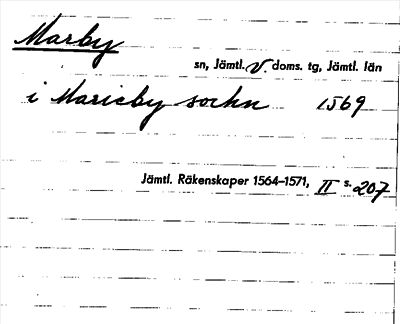 Marby
sn, Jämtl. V. doms. tg, Jämtl. län
i Marieby sockn 1569
Jämtl. Räkenskaper 1564–1571, II s. 207